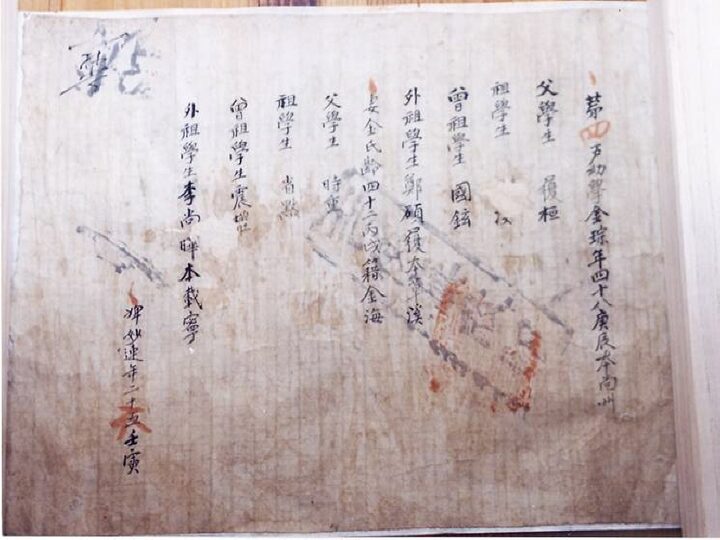 第四戶幼學金琮年四十八庚辰本尚州
父學生 履桓
祖學生
曾祖學生 國鉉
外祖學生鄭碩履本草溪
妻金氏齡四十二丙戌籍金海
父學生 時重
祖學生 省點
曾祖學生震
外祖學生李尚暉本載寧
婢妙連年二十五壬寅